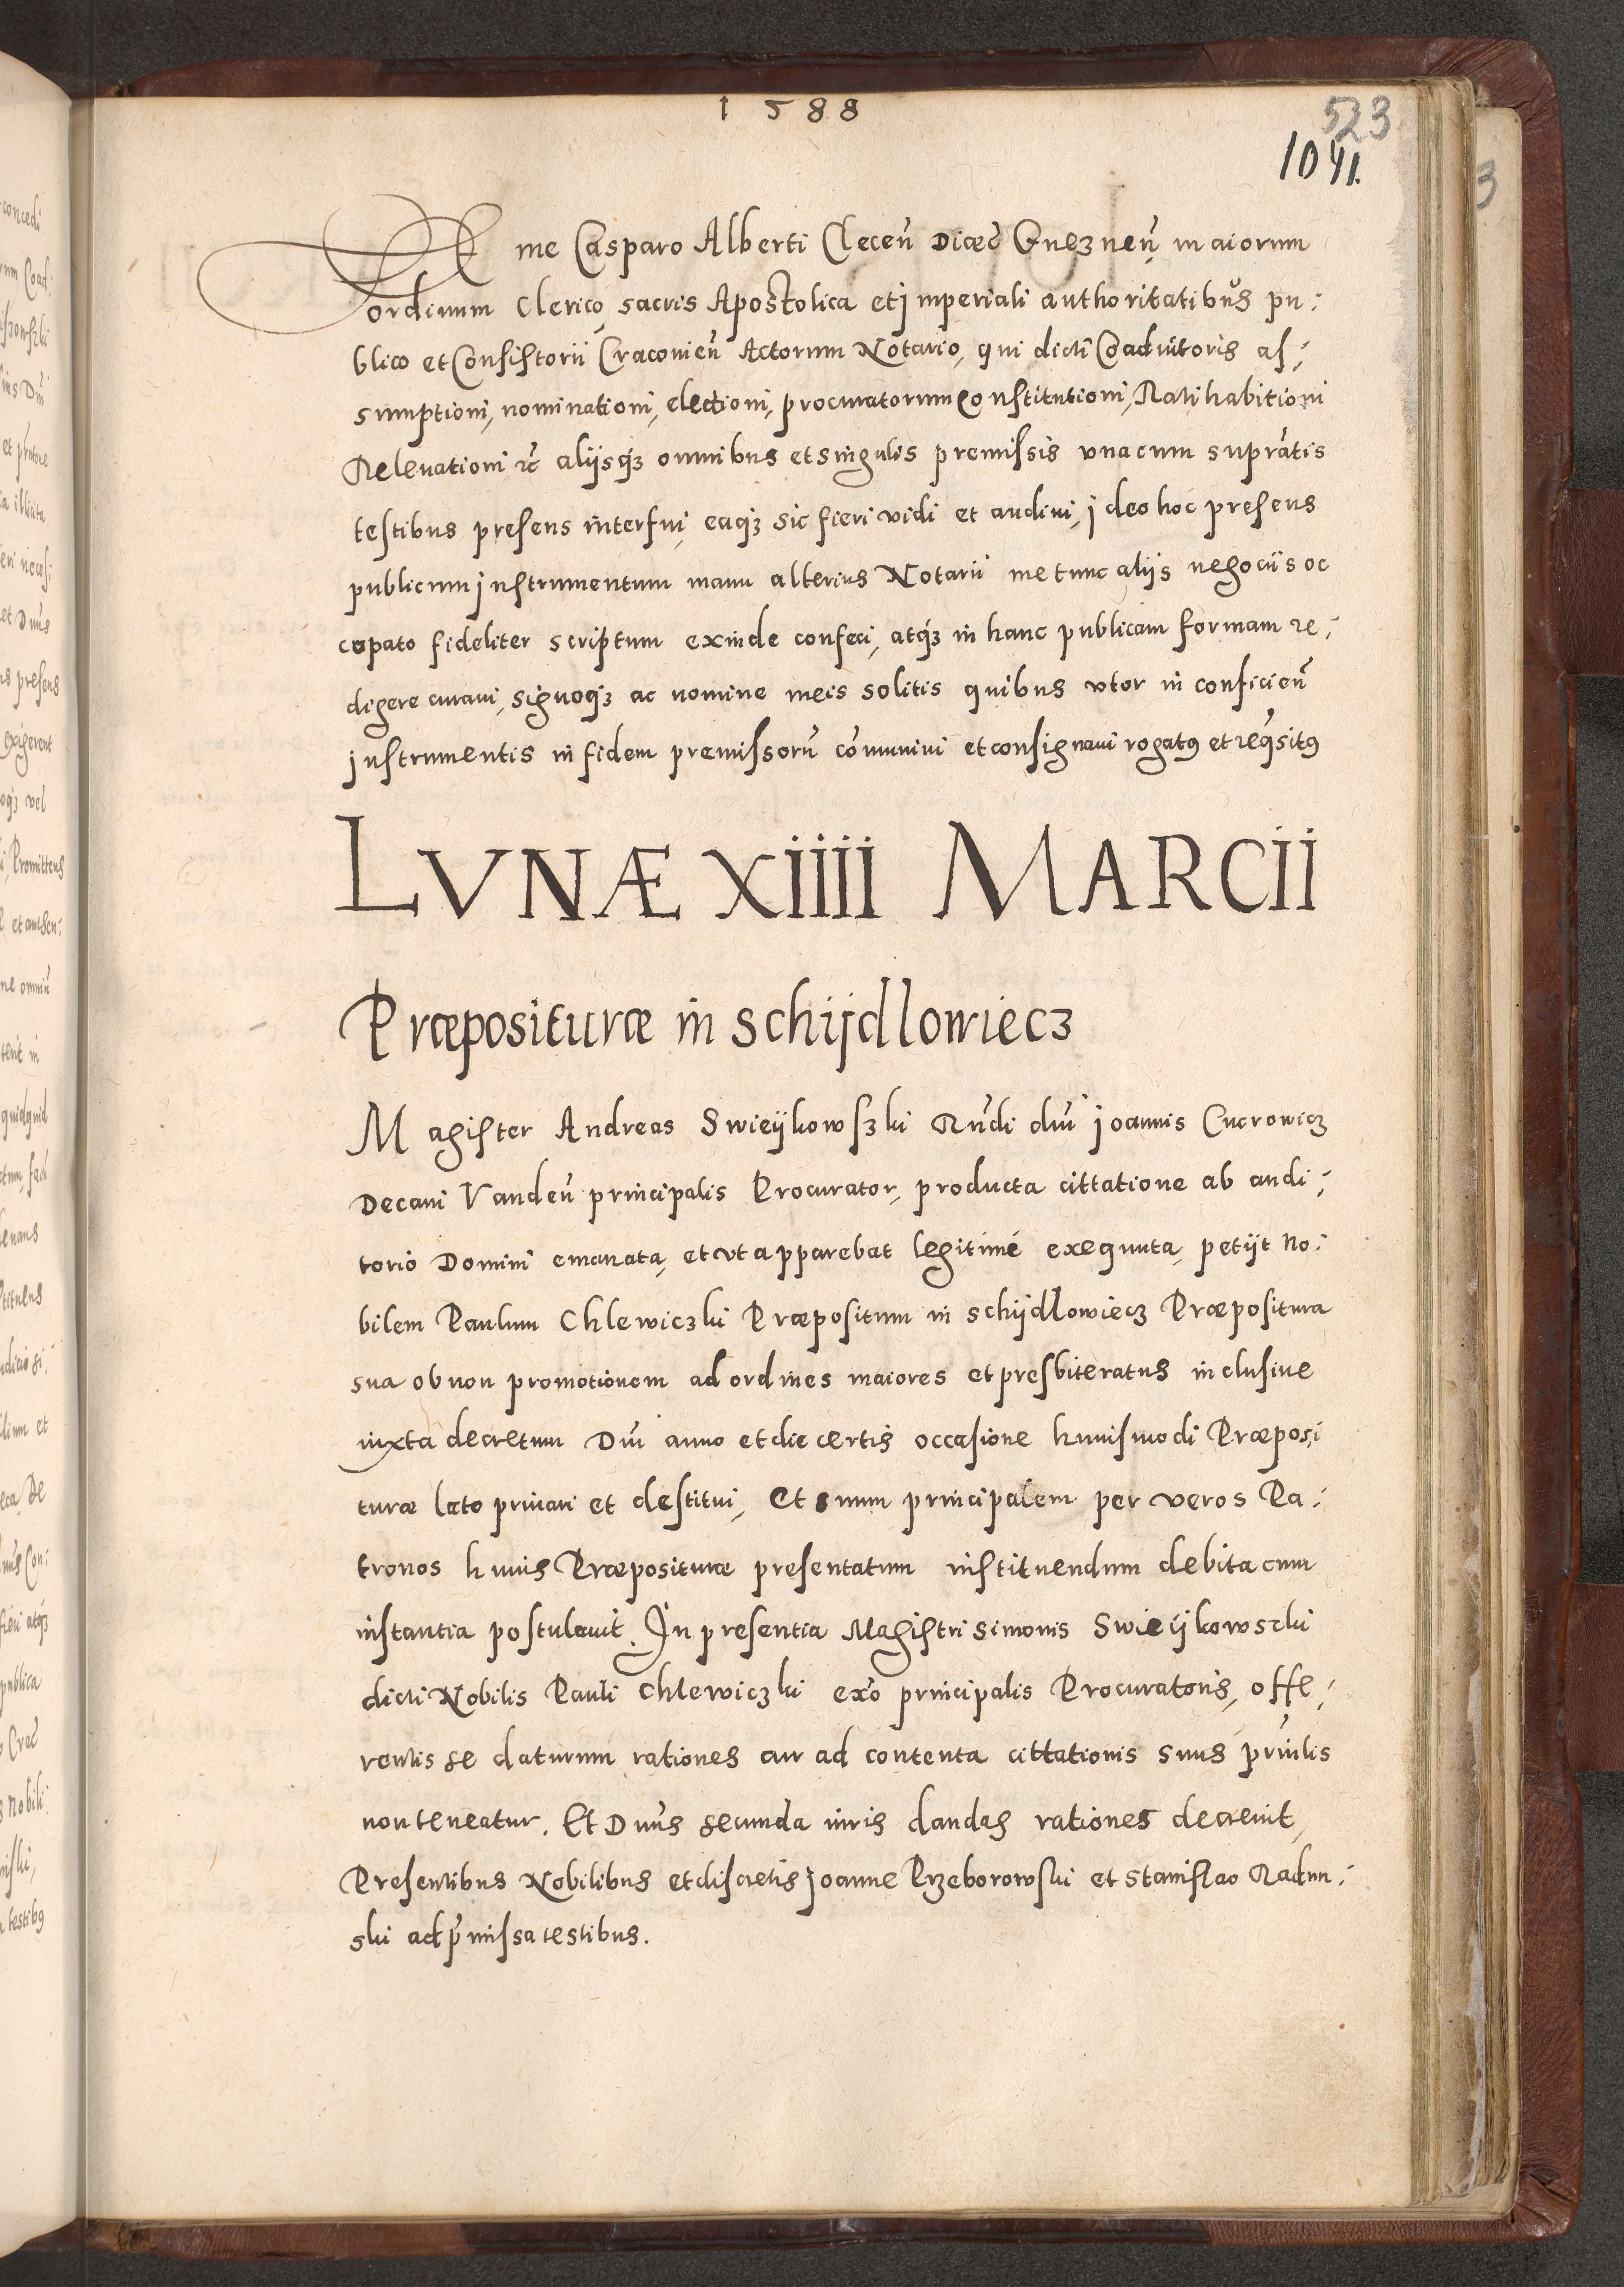 1588
523
1041.
Et me Casparo Alberti Cleceñ Diœc Gnezneñ, maiorum
ordinum Clerico, sacris Apostolica et jmperiali authoritatibus pu:
blico et Consistorii Cracovieñ Actorum Notario, qui dicti Coadiutoris as:
sumptioni, nominationi, electioni, procuratorum Constitutioni, Ratihabitioni
Relevationi &c̃ aliisq3 omnibus et singulis premissis vna cum suprãtis
testibus presens interfui, eaq3 sic fieri vidi et audiui, jdeo hoc presens
publicum jnstrumentum manu alterius Notarii me tunc aliis negociis oc
cupato fideliter scriptum exinde confeci, atq3 in hanc publicam formam re:
digere curaui, signoq3 ac nomine meis solitis quibus vtor in conficieñ
jnstrumentis in fidem premissorũ cõmuniui et consignaui rogatꝯ et req̃sitꝯ
LVNÆ XIIII MARCII
Præposituræ in Schijdlowiecz
Magister Andreas Swieÿkowszki Rñdi dñi joannis Cucrowicz
Decani Vandeñ principalis Procurator, producta cittatione ab audi:
torio Domini emanata, et vt apparebat legitimé exequuta, petijt No:
bilem Paulum Chlewiczki Præpositum in Schijdlowiecz Præpositura
sua ob non promotionem ad ordines maiores et presbiteratus inclusiue
iuxta decretum Dñi anno et die certis occasione huiusmodi Præposi
turæ lato priuari et destitui, Et suum principalem per veros Pa:
tronos huius Præposituræ presentatum instituendum debita cum
instantia postulauit. In presentia Magistri Simonis Swieÿkowszki
dicti Nobilis Pauli Chlewiczki exõ principalis Procuratoris, offe:
rentis se daturum rationes cur ad contenta cittationis suus prĩnlis
non teneatur. Et Dñus secunda iuris dandas rationes decreuit,
Presentibus Nobilibus et discretis Joanne Przeborowski et Stanislao Radun:
ski ad p̃missa testibus.